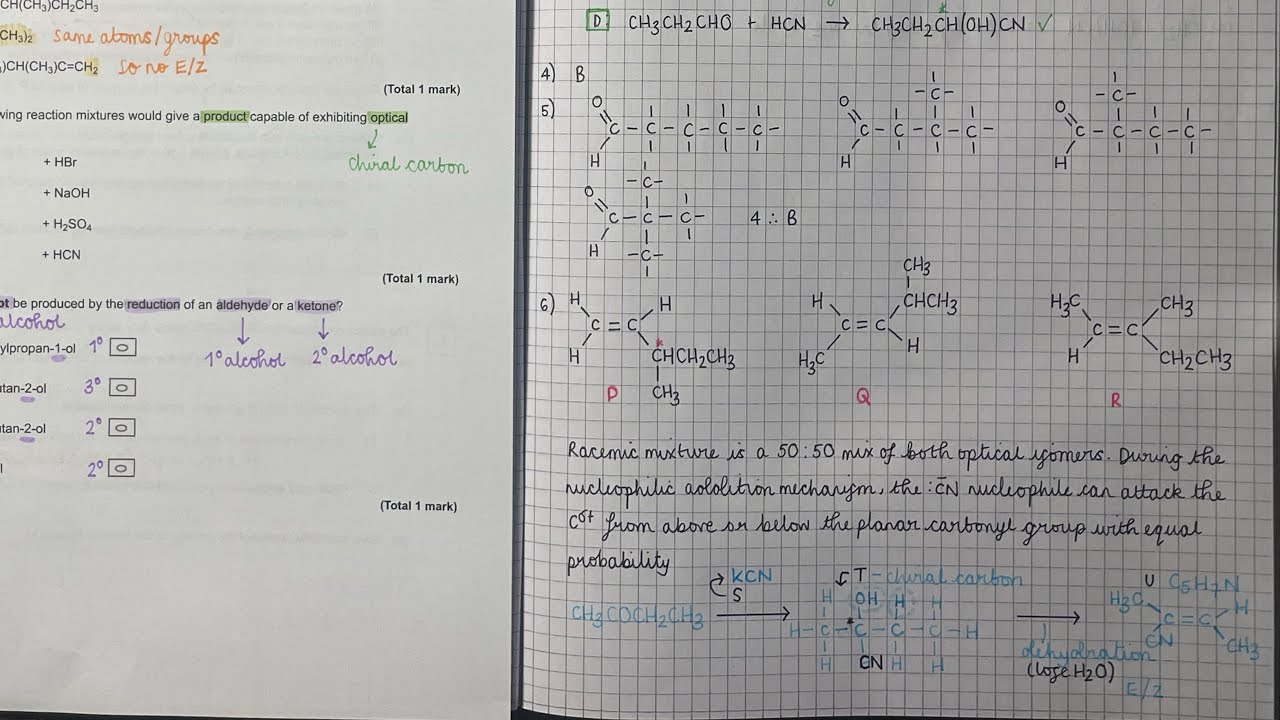 CH(CH3)CH2CH3
CH3)2 same atoms/groups
)CH(CH3)C=CH2 so no E/Z
(Total 1 mark)
wing reaction mixtures would give a product capable of exhibiting optical
chiral carbon
+ HBr
+ NaOH
+ H2SO4
+ HCN
(Total 1 mark)
ot be produced by the reduction of an aldehyde or a ketone?
alcohol
1° alcohol 2° alcohol
ylpropan-1-ol 1°
utan-2-ol 3°
utan-2-ol 2°
l 2°
(Total 1 mark)
D CH3CH2CHO + HCN → CH3CH2CH(OH)CN ✓
*
4) B
5)
O C – C – C – C – C – H
O C – C – C – C – H – C –
O C – C – C – C – H – C –
O C – C – C – H – C – – C – 4 ∴ B
6) H H C = C H *CHCH2CH3 CH3
H CH3 CHCH3 C = C H3C H
H3C CH3 C = C H CH2CH3
P Q R
Racemic mixture is a 50:50 mix of both optical isomers. During the
nucleophilic addition mechanism, the :C̄N nucleophile can attack the
Cδ+ from above or below the planar carbonyl group with equal
probability
KCN
S
T – chiral carbon
U C5H7N
CH3COCH2CH3
H OH H H
H – C – *C – C – C – H
H CN H H
H3C H
C = C
CN CH3
dehydration
(lose H2O)
E/Z